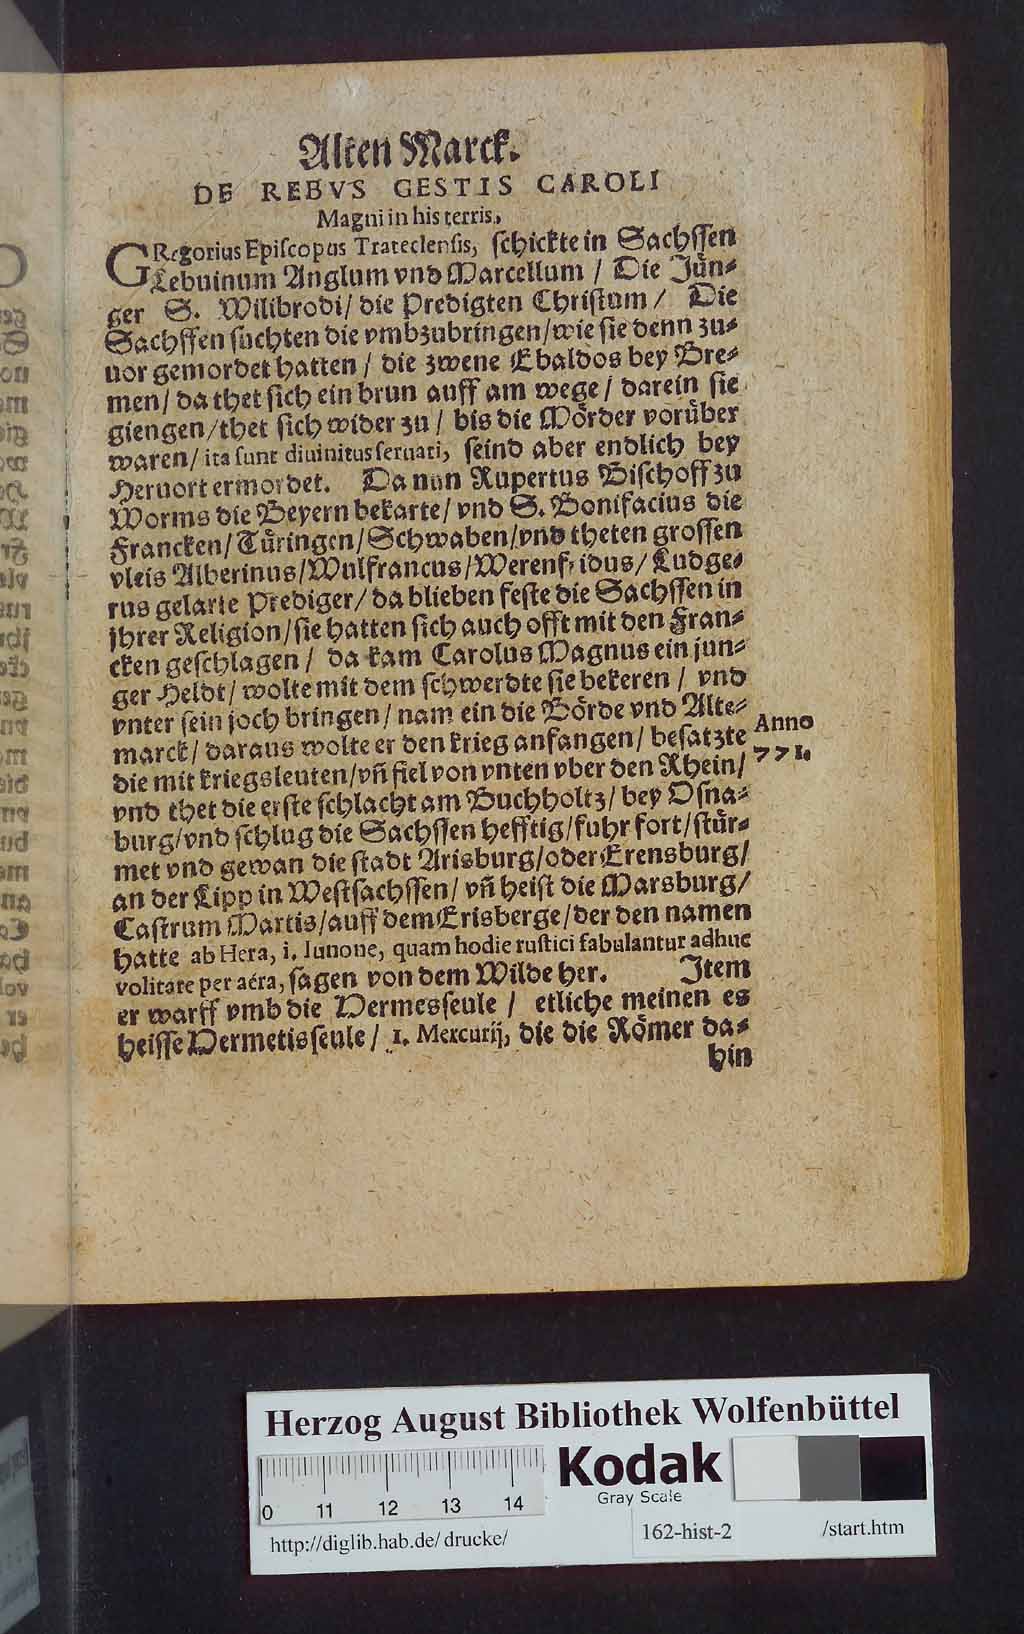 Alten Marck.
DE REBVS GESTIS CAROLI
Magni in his terris.
GRegorius Episcopus Traiectensis, schickte in Sachssen
Lebuinum Anglum vnd Marcellum / Die Jün⸗
ger S. Wilibrodi / die Predigten Christum / Die
Sachssen suchten die vmbzubringen / wie sie denn zu⸗
uor gemordet hatten / die zwene Ebaldos bey Bre⸗
men / da thet sich ein brun auff am wege / darein sie
giengen / thet sich wider zu / bis die Mörder vorüber
waren / ita sunt diuinitus seruati, seind aber endlich bey
Heruort ermordet. Da nun Rupertus Bischoff zu
Worms die Beyern bekarte / vnd S. Bonifacius die
Francken / Türingen / Schwaben / vnd theten grossen
vleis Alberinus / Wulfrancus / Werenfridus / Ludge⸗
rus gelarte Prediger / da blieben feste die Sachssen in
jhrer Religion / sie hatten sich auch offt mit den Fran⸗
cken geschlagen / da kam Carolus Magnus ein jun⸗
ger Heldt / wolte mit dem schwerdte sie bekeren / vnd
vnter sein joch bringen / nam ein die Börde vnd Alte⸗
marck / daraus wolte er den krieg anfangen / besatzte
Anno
771.
die mit kriegsleuten / vñ fiel von vnten vber den Rhein /
vnd thet die erste schlacht am Buchholtz / bey Osna⸗
burg / vnd schlug die Sachssen hefftig / fuhr fort / stür⸗
met vnd gewan die stadt Arisburg / oder Erensburg /
an der Lipp in Westsachssen / vñ heist die Marsburg /
Castrum Martis / auff dem Erisberge / der den namen
hatte ab Hera, i. Iunone, quam hodie rustici fabulantur adhuc
volitare per aéra, sagen von dem Wilde her. Item
er warff vmb die Vermesseule / etliche meinen es
heisse Vermetisseule / 1. Mercurij, die die Römer da⸗
hin
Herzog August Bibliothek Wolfenbüttel
0 11 12 13 14
Kodak
Gray Scale
http://diglib.hab.de/drucke/ 162-hist-2 /start.htm